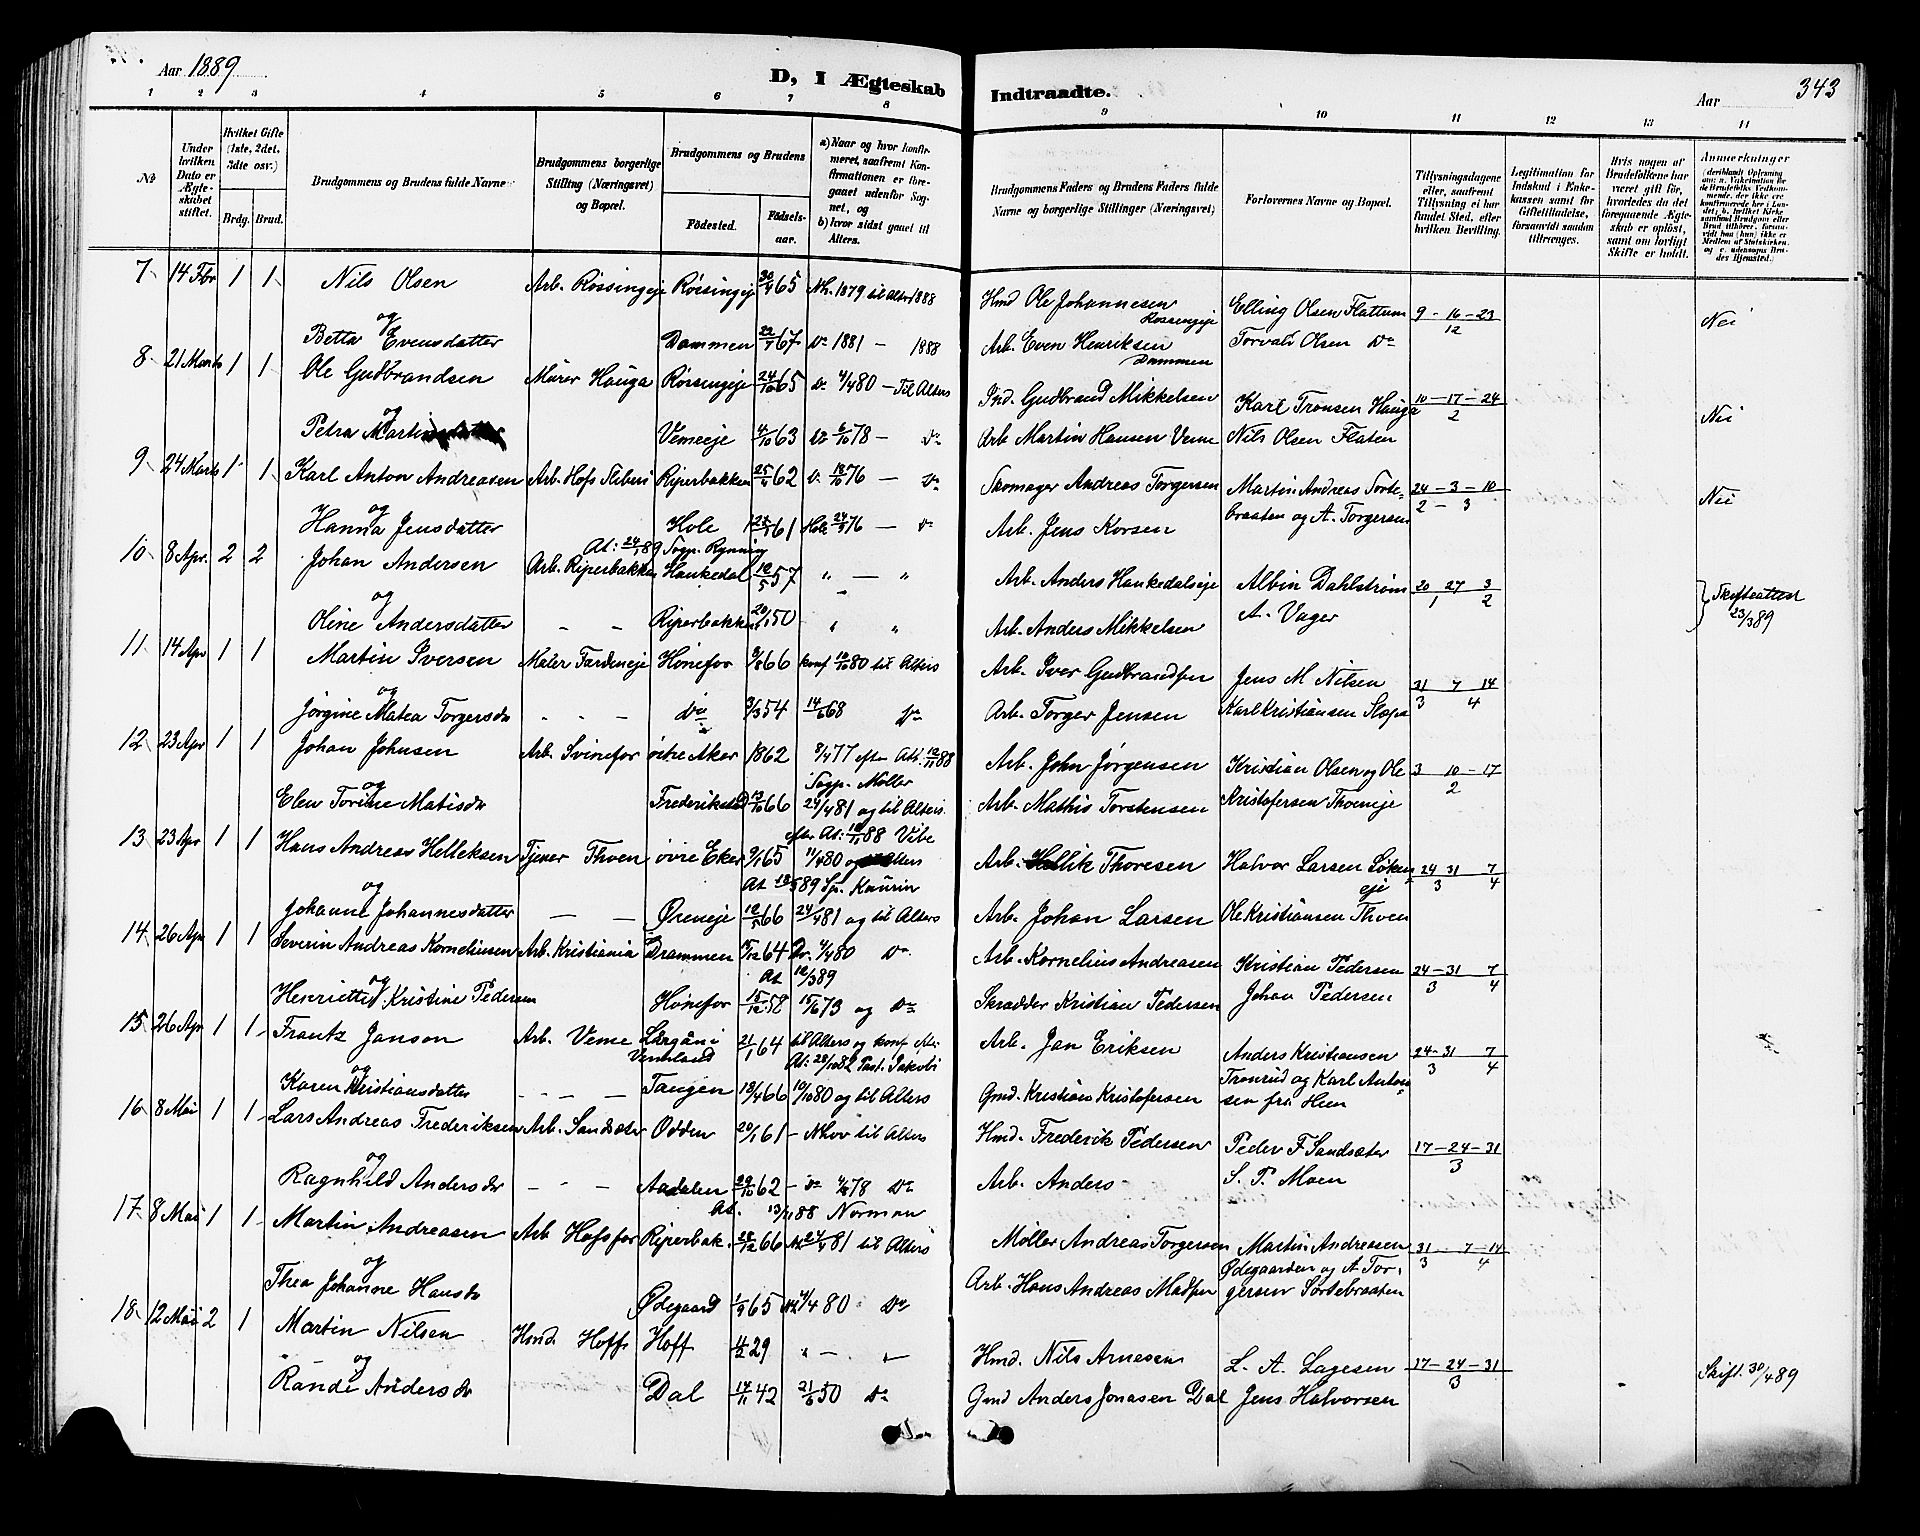 Aar 1889
D, I Ægteskab Indtraadte.
Aar 343
1 2 3 4 5 6 7 8 9 10 11 12 13 14
№
Under hvilken Dato er Ægteskabet stiftet.
Hvilket Gifte (1ste, 2det, 3die osv.)
Brdg. Brud.
Brudgommens og Brudens fulde Navne
Brudgommens borgerlige Stilling (Næringsvei) og Bopæl.
Brudgommens og Brudens
Fødested. Fødselsaar.
a) Naar og hvor konfirmeret, saafremt Konfirmationen er foregaaet udenfor Sognet, og
b) hvor sidst gaaet til Alters.
Brudgommens Faders og Brudens Faders fulde Navne og borgerlige Stillinger (Næringsvei)
Forlovernes Navne og Bopæl.
Tillysningsdagene eller, saafremt Tillysning ei har fundet Sted, efter hvilken Bevilling.
Legitimation for Indskud i Enkekassen samt for Giftetilladelse, forsaavidt saadan tiltrænges.
Hvis nogen af Brudefolkene har været gift før, hvorledes da det foregaaende Ægteskab er opløst, samt om lovligt Skifte er holdt.
Anmerkninger
7 14 Fbr 1 1 Nils Olsen Arb. Røssingeje Røssingeje 30/4 65 Nh. 1879 til Alters 1888 Hmd Ole Johannesen Røssingeje Elling Olsen Flattum 9-16-23/12 Nei
og
Betta Evensdatter Dammen 22/1 67 Do 1881 – 1888 Arb. Even Henriksen Dammen Torvald Olsen Do
8 21 Marts 1 1 Ole Gudbrandsen Murer Hauga Røssingeje 24/10 65 Do 4/4 80 – Til Alters Ind. Gudbrand Mikkelsen Karl Tronsen Hauga 10-17-24/2 Nei
og
Petra Martinsdatter Vemeeje 4/10 63 Do 6/10 78 – Do Arb Martin Hansen Veme Nils Olsen Flaten
9 24 Marts 1 1 Karl Anton Andreasen Arb. Hofs Sliberi Riperbakken 25/4 62 Do 76 – Do Skomager Andreas Torgersen Martin Andreas Sortebraaten og A. Torgersen 24-3-10/2-3 Nei
og
Hanna Jensdatter Hole 61 Hole 24/9 76 – Do Arb. Jens Korsen
At: 24/1 89 Sogp. Rynning
10 8 Apr. 2 2 Johan Andersen Arb. Riperbakken Haukedal 12/5 57 " – " Arb. Anders Haukedalseje Albin Dahlstrøm 20 27 3/1 2 Skifteattest 23/3 89
og
Oline Andersdatter – – Riperbakken 20/1 50 " " Arb. Anders Mikkelsen A. Vager
11 14 Apr 1 1 Martin Iversen Maler Færdeneje Hønefos 9/8 66 konf 80 til Alters Arb. Iver Gudbrandsen Jens M Nilsen 31 7 14/3 4
og
Jørgine Matea Torgersdr – – – Do 9/3 54 14/6 68 Do Arb. Torger Jensen Karl Kristiansen
12 23 Apr 1 1 Johan Johnsen Arb. Svinefos østre Aker 1862 8/4 77 efter Att. 12/11 88 Sogp. Møller Arb. John Jørgensen Kristian Olsen og Ole Kristofersen Thoeneje 3 10-17/2
og
Elen Torine Matisdr Frederikstad 13/10 66 24/4 81 og til Alters. Arb. Mathis Torstensen
efter At: 88 Vibe
13 23 Apr 1 1 Hans Andreas Helleksen Tjener Thoen øvre Eker 9/1 65 11/4 80 og Alters Arb. Hellik Thoresen Halvor Larsen Løken eje 24 31 7/3 4
At 89 Sp. Kaurin
og
Johanne Johannesdatter – – Øreneje 12/5 66 24/4 81 og til Alters Arb. Johan Larsen Ole Kristiansen Thoen
14 26 Apr 1 1 Severin Andreas Korneliussen Arb. Kristiania Drammen 64 Dr. 4/4 80 Do Arb. Kornelius Andreasen Kristian Pedersen 24-31 7/3 4
At 12/3 89
og
Henriette Kristine Pedersen Hønefos 15/12 58 15/6 73 og Do Skrædder Kristian Pedersen Johan Pedersen
15 26 Apr 1 1 Frantz Janson Arb. Veme i Vermland 21/1 64 til Alters og konf At: 28/10 82 Past. Jakobi Arb. Jan Eriksen Anders Kristiansen Tronrud og Karl Antonsen fra Heen 24-31 7/3 4
og
Karen Kristiansdatter – – – Tangen 18/4 66 10/10 80 og til Alters Gmd. Kristian Kristofersen
16 8 Mai 1 1 Lars Andreas Frederiksen Arb. Sandsæter Odden 20/1 61 – Nhov til Alters Hmd. Frederik Pedersen Peder F Sandsæter 17-24-31/3
og
Ragnhild Andersdr – – – Aadalen 29/10 62 – Do 78 Do Arb. Anders – S. P. Moen
At. 13/11 88 Norman
17 8 Mai 1 1 Martin Andreasen Arb Hofsfos Riperbak. 28/12 66 24/4 81 til Alters Møller Andreas Torgersen Martin Andreasen Ødegaarden og A Torgersen Sortebraaten 31-7-14/3 4
og
Thea Johanne Hansdr Ødegaard 1/9 65 4/4 80 Do Arb. Hans Andreas Madsen
18 12 Mai 2 1 Martin Nilsen Hmd. Hoff Hoff 11/2 29 " – " Hmd. Nils Arnesen L. A. Lagesen 17-24-31/3 Skift. 30/4 89
og
Randi Andersdr Dal 14/11 42 21/6 50 Do Gmd Anders Jonasen Dal Jens Halvorsen